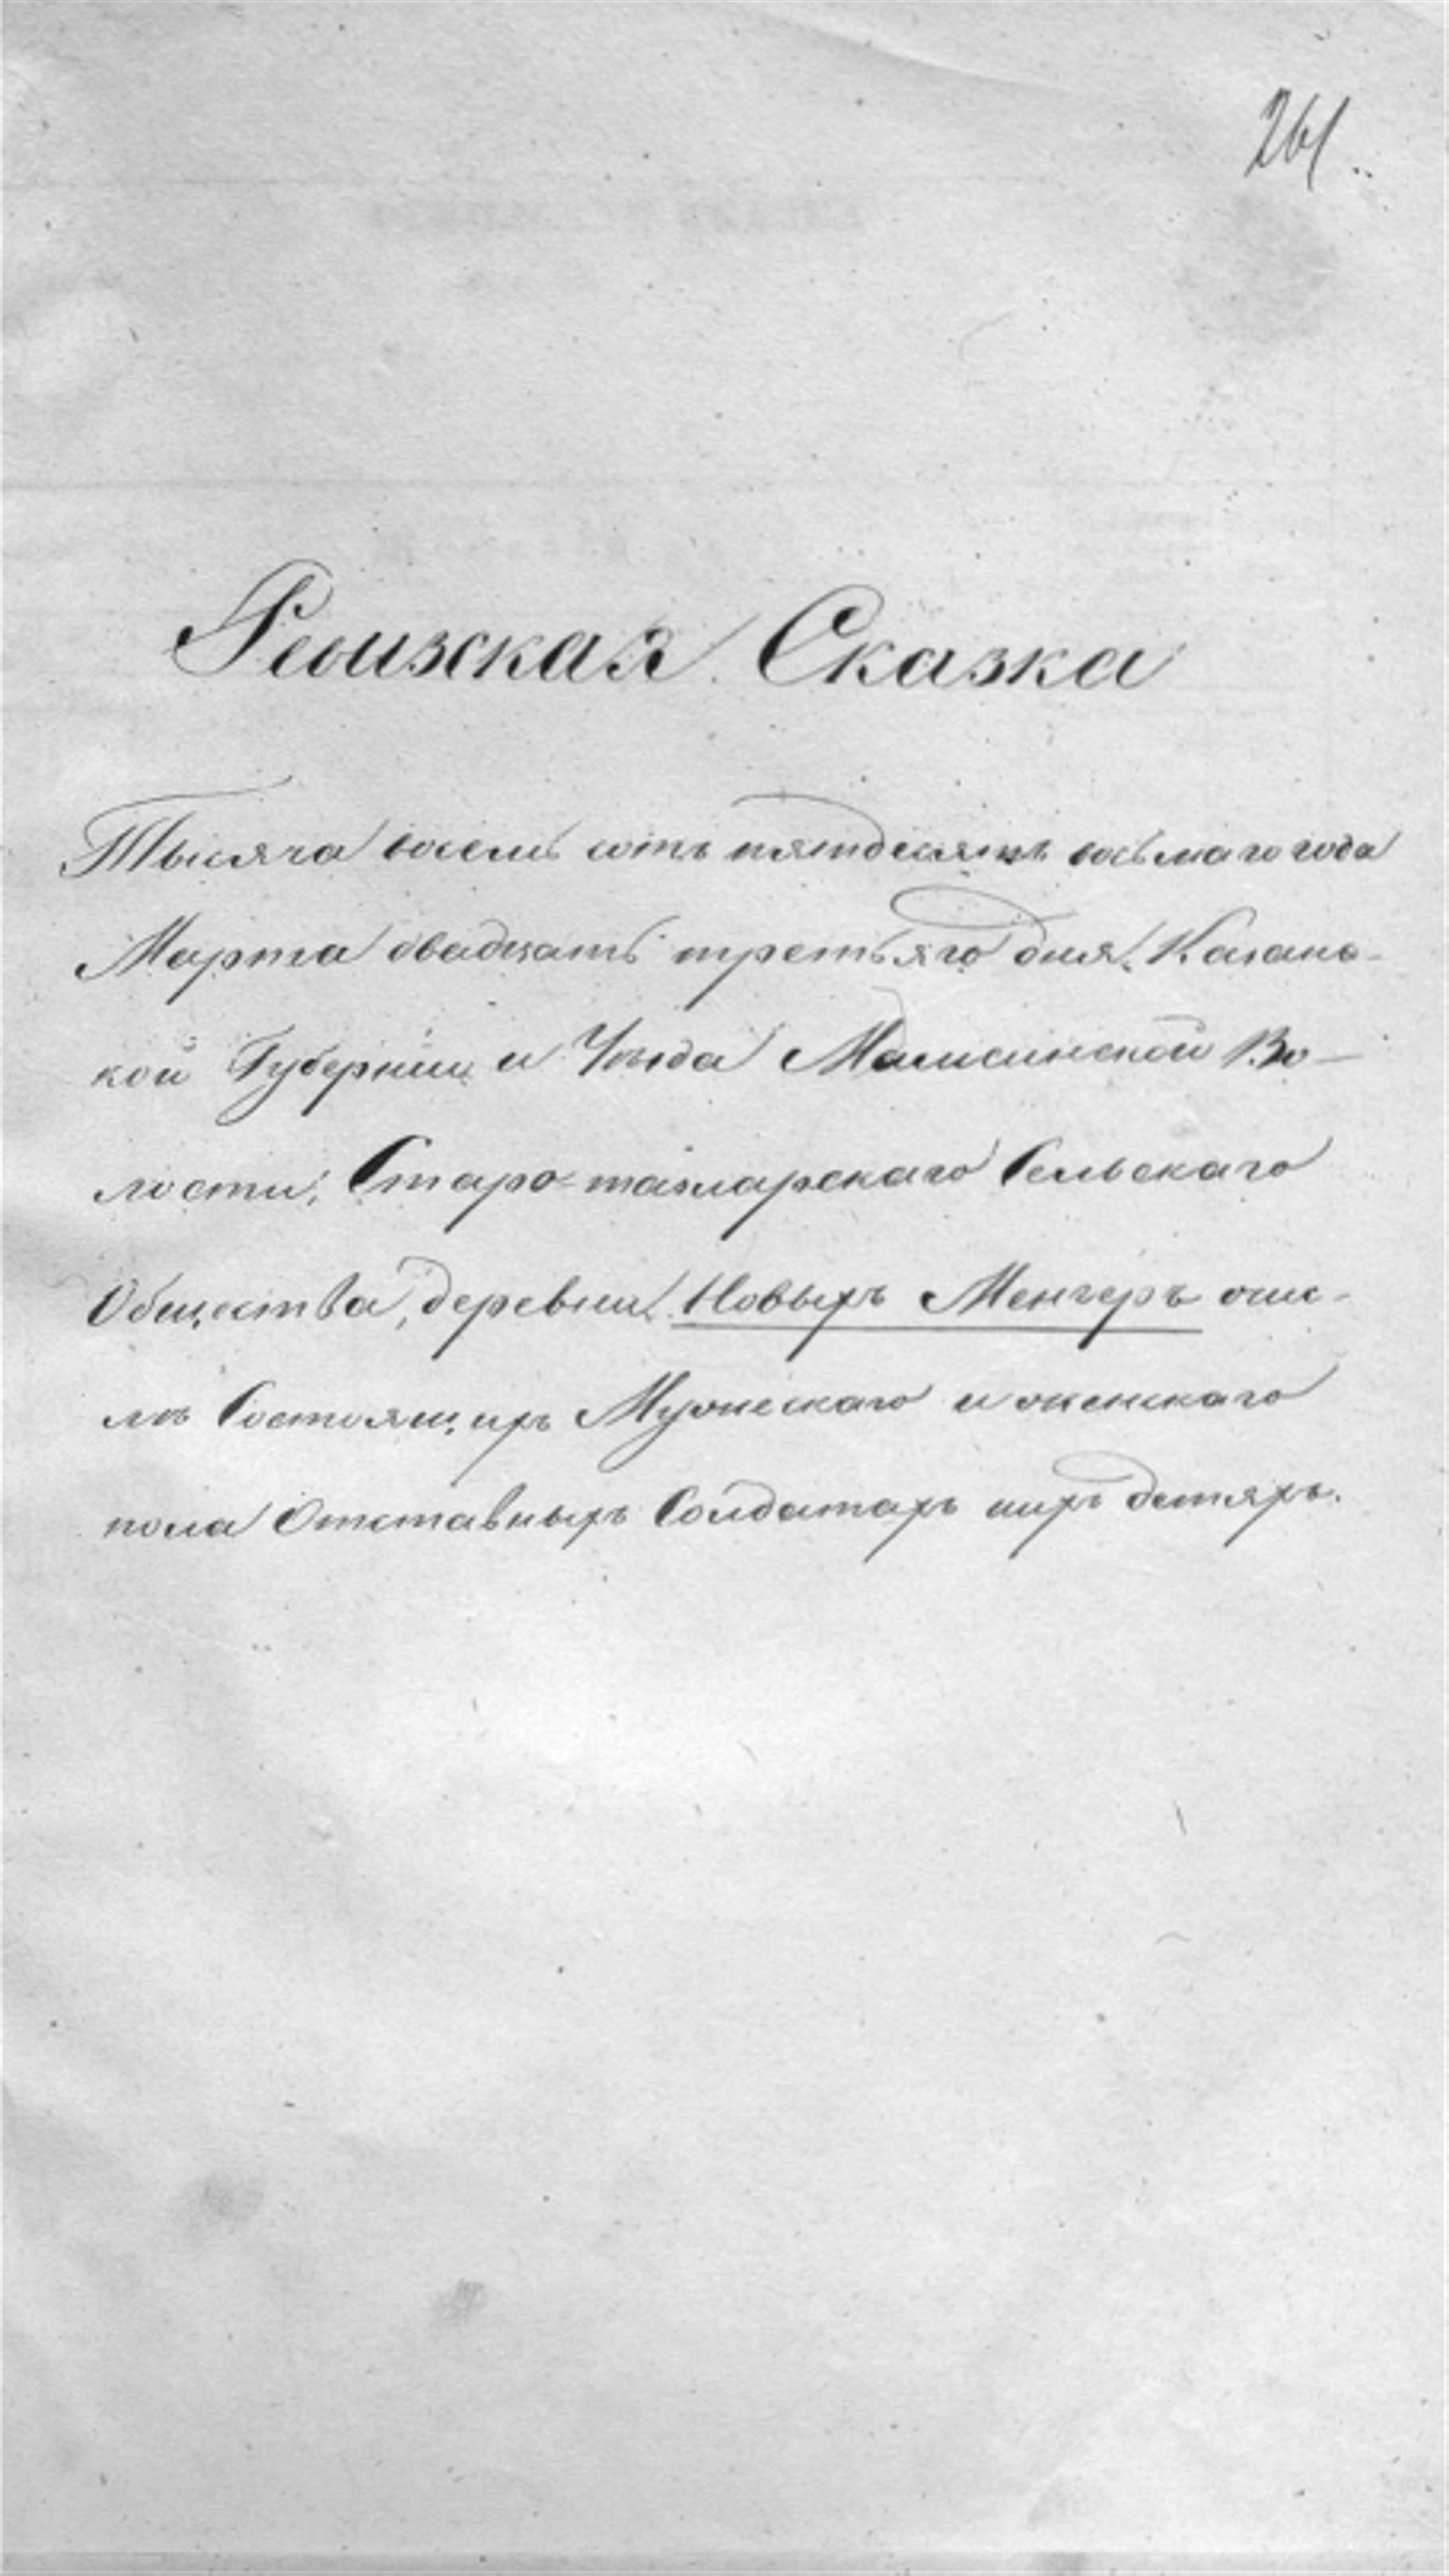 261.
Ревизская Сказка
Тысяча восемь сотъ пятдесятъ восьмаго года
Марта двадцать третьяго дня, Казанс-
кой Губерніи и Уѣзда Мамсинской Во-
лости, Старо-татарскаго Сельскаго
Общества, деревни Новыхъ Менгеръ о чис-
лѣ Состоящихъ Мужескаго и женскаго
пола Отставныхъ Солдатахъ и ихъ детяхъ.